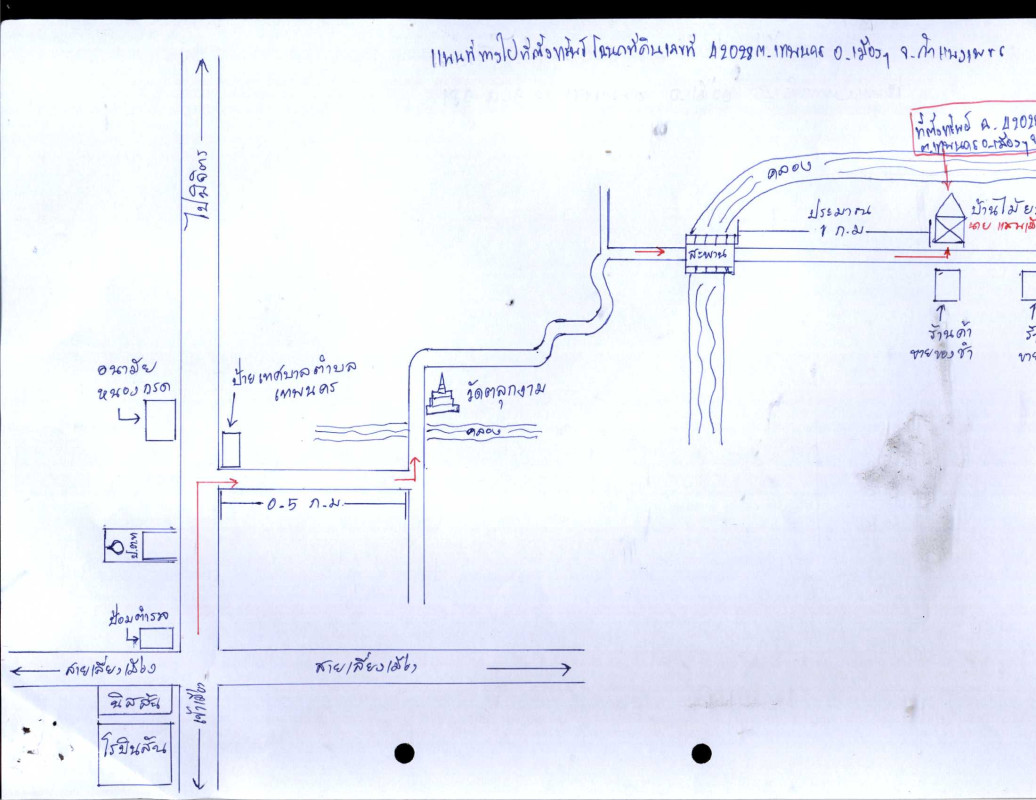 แผนที่ทางไปที่ตั้งทรัพย์ โฉนดที่ดินเลขที่ 42028 ต.เทพนคร อ.เมืองฯ จ.กำแพงเพชร
ไปพิจิตร
ที่ตั้งทรัพย์ ฉ. 42028
ต.เทพนคร อ.เมืองฯ จ
คลอง
ประมาณ
1 ก.ม.
บ้านไม้
นาย
สะพาน
ร้านค้า
ขายของชำ
ร้
ขาย
อนามัย
หนองกรด
ป้ายเทศบาลตำบล
เทพนคร
วัดตลุกงาม
คลอง
0.5 ก.ม.
ป.ต.ท
ป้อมตำรวจ
สายเลี่ยงเมือง
สายเลี่ยงเมือง
นิสสัน
เข้าเมือง
โรบินสัน